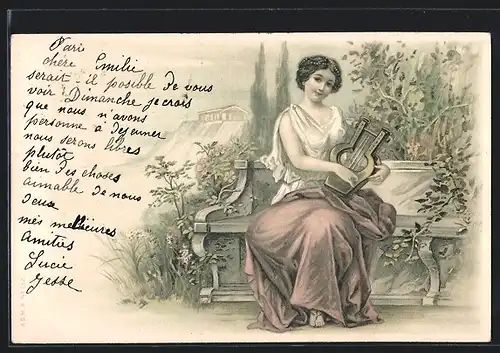 Pari
chère Emilie
serait-il posible de vous
voir Dimanche je crois
que nous n'avons
personne a dejeuner
nous serons libres
plutôt
bien des choses
aimable de nous
deux
mes meilleures
Amitiés
Lucie
Jesse